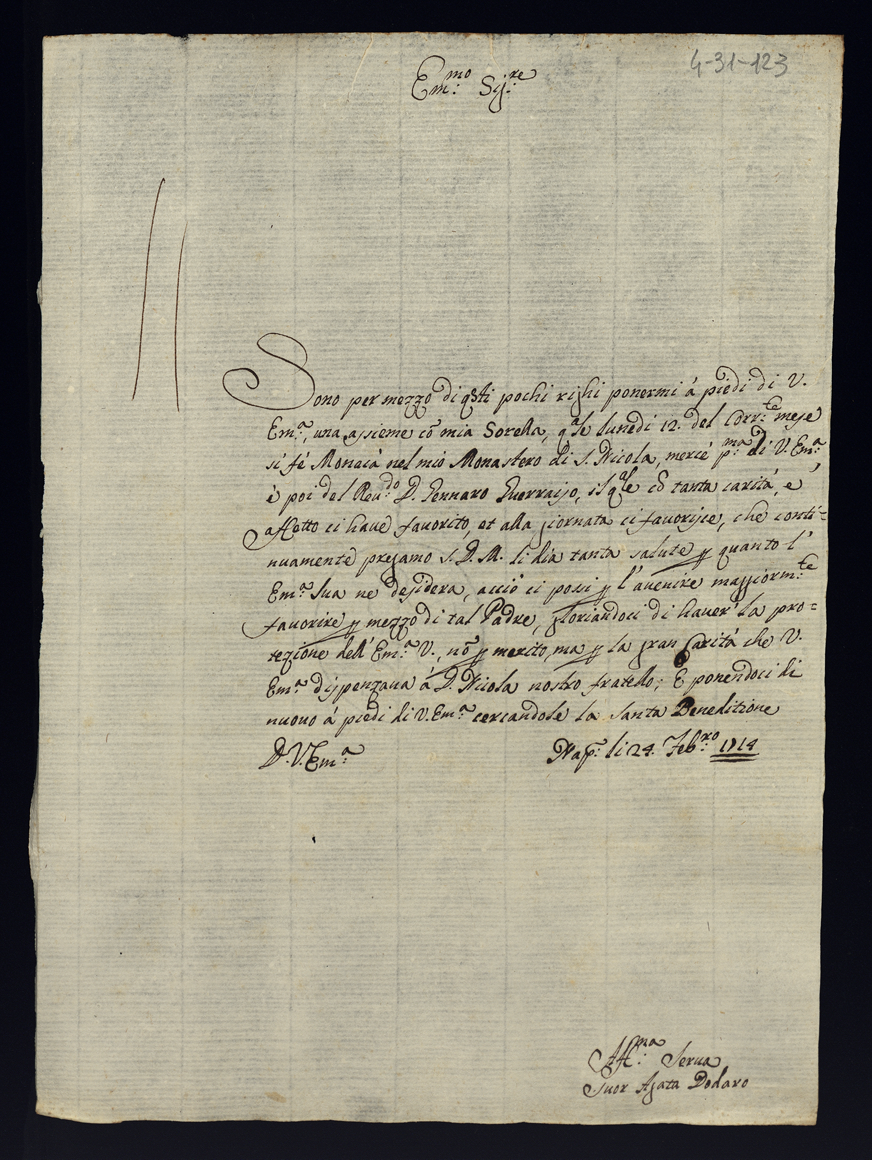 4-31-123
Em:mo Sig:re
Sono per mezzo di qsti pochi righi ponermi á piedi di V.
Em:a, una assieme cõ mia Sorella, q.ale lunedi 12. del Corr:te mese
si fé Monaca nel mio Monastero di S. Nicola, mercé p.ma di V. Em:a
é poi del Reu:do D. Gennaro Guerrasio, il q.ale cõ tanta caritá, e'
affetto ci have favorito, et alla giornata ci favorisce, che conti=
nuamente pregamo S. D. M. li dia tanta salute p quanto l'
Em:a Sua ne desidera, acció ci possi p l'auenire maggiorm:te
favorire p mezzo di tal Padre, gloriandoci di haver' la pro=
tezione dell' Em:a V., nõ p merito, ma p la gran Caritá che V.
Em:a dispenzaua á D. Nicola nostro fratello; E ponendoci di
nuovo á piedi di V. Em:a cercandole la Santa Beneditione
D. V. Em:a Nap: li 24. Feb:ro 1714
Aff:ma Serua
Suor Agata Dodaro